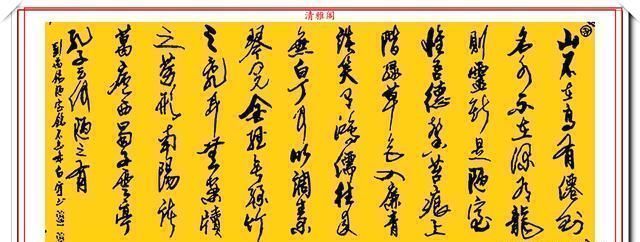 清雅阁
山不在高有僊則
名水不在深有龍
則靈斯是陋室
惟吾德馨苔痕上
階緑草色入廉青
談笑有鴻儒往來
無白丁可以調素
琴閱金經無絲竹
之亂耳無案牘
之勞形南陽諸
葛廬西蜀子雲亭
孔子云何陋之有
劉禹錫陋室銘